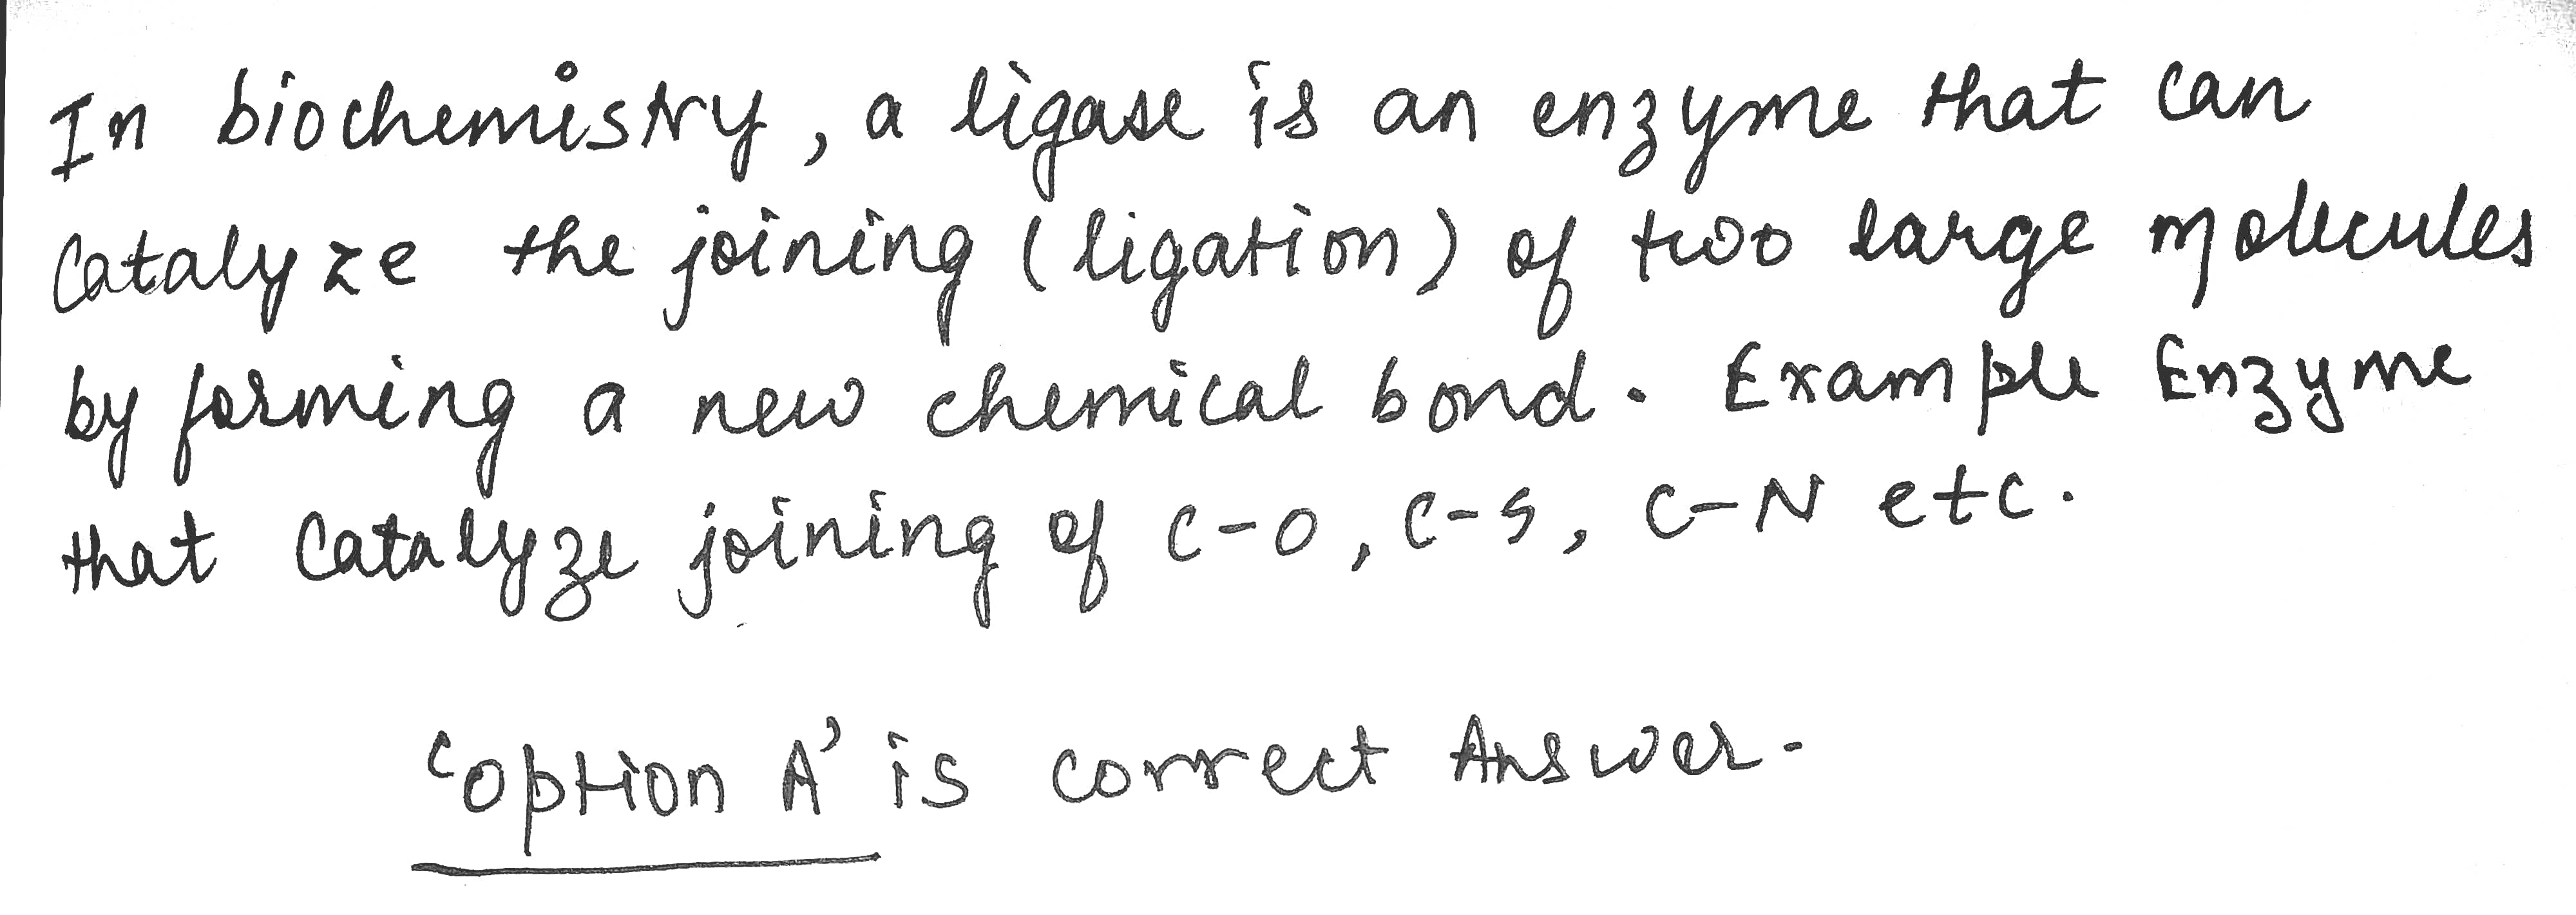 In biochemistry, a ligase is an enzyme that can
Catalyze the joining (ligation) of two large molecules
by forming a new chemical bond. Example Enzyme
that Catalyze joining of C-O, C-S, C-N etc.
'option A' is correct Answer.